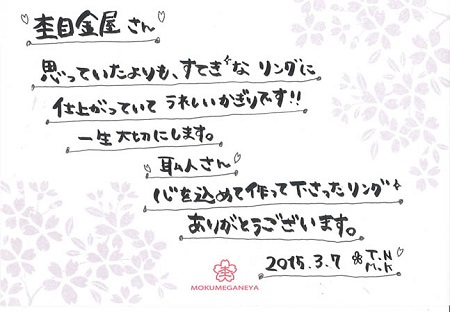 杢目金屋さん
思っていたよりも、すてきな リングに
仕上がっていて うれしいかぎりです!!
一生大切にします。
職人さん
心を込めて作って下さったリング
ありがとうございます。
2015.3.7 T.N
M.K
MOKUMEGANEYA